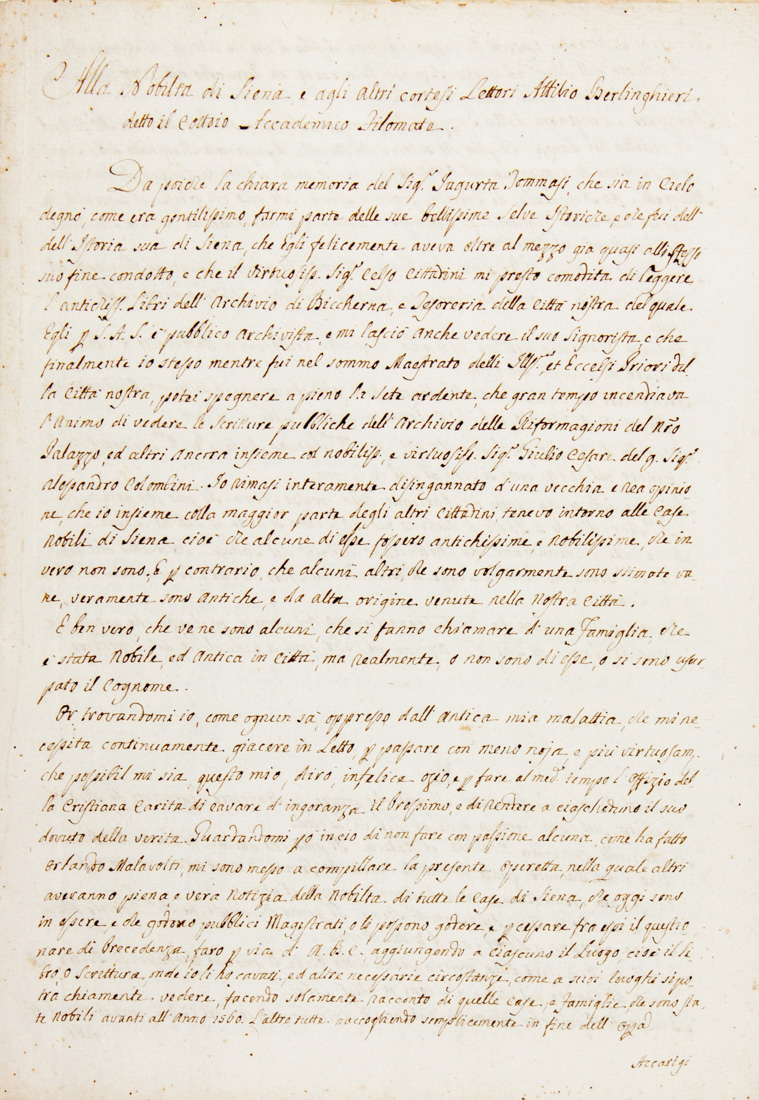 Alla Nobilta di Siena, e agli altri cortesi Lettori Attilio Berlinghieri,
detto il Cottoio Accademico Filomato.
Da poiche la chiara memoria del Sig.r Iugurta Tommasi, che sia in Cielo
degnò come era gentilissimo, farmi parte delle sue bellissime selve Istoriche, e che fui dell'
dell'Istoria sua di Siena, che Egli felicemente aveva oltre al mezzo gia quasi allo stesso
suo fine condotto, e che il virtuosiss. Sig.r Celso Cittadini mi prestò comodità di leggere
l'antichiss. Libri dell'Archivio di Biccherna, e Tesoreria della Città nostra del quale
Egli p S. A. S. è pubblico Archivista, e mi lasciò anche vedere il suo Signorista, e che
finalmente io stesso mentre fui nel sommo Maestrato delli Ill.mi, et Eccelsi Priori del
la Città nostra, potei spegnere a pieno la sete ardente, che gran tempo incendiava
l'Animo di vedere le scritture pubbliche dell'Archivio delle Riformagioni del Nro
Palazzo, ed altri ancora insieme col nobiliss. e virtuosiss. Sig.r Giulio Cesare del q. Sig.r
Alessandro Colombini. Io rimasi interamente disingannato d'una vecchia e rea opinio
ne, che io insieme colla maggior parte degli altri Cittadini, tenevo intorno alle Case
Nobili di Siena cioè che alcune di esse fossero antichissime, e nobilissime, che in
vero non sono. E p contrario, che alcuni altri, che sono volgarmente sono stimate va
ne, veramente sono Antiche, e da alta origine venute nella Nostra Città.
E ben vero, che ve ne sono alcuni, che si fanno chiamare d'una Famiglia, che
è stata Nobile, ed Antica in Città, ma realmente, o non sono di esse, o si sono usur
pato il Cognome.
Or trovandomi io, come ognun sà, oppresso dall'Antica mia malattia, che mi ne-
cessita continuamente giacere in Letto, p passare con meno noja e più virtuosam.
che possibil mi sia, questo mio, dirò, infelice ozio, e p fare al med.o tempo l'Offizio del
la Cristiana Carità di cavare d'ingoranza il Prossimo, e di rendere a ciascheduno il suo
dovuto della verità. Guardandomi po in ciò di non fare con passione alcuna, come ha fatto
Orlando Malavolti, mi sono messo a compillare la presente Operetta, nella quale altri
averanno piena, e vera Notizia della Nobiltà di tutte le Case di Siena, che oggi sono
in essere, e che godono pubblici Magistrati, o li possono godere, e p cessare fra essi il questio
nare di Precedenza, farò p via d'A. B. C. aggiungendo a ciascuno il Luogo cioè il li
bro, o Scrittura, onde io li ho cavati, ed altre necessarie circostanze, come a suoi luoghi si po
trà chiamente vedere, facendo solamente racconto di quelle Case, e famiglie, che sono sta
te Nobili avanti all'Anno 1560. L'altre tutte raccogliendo semplicemente in fine dell'
Accarigi